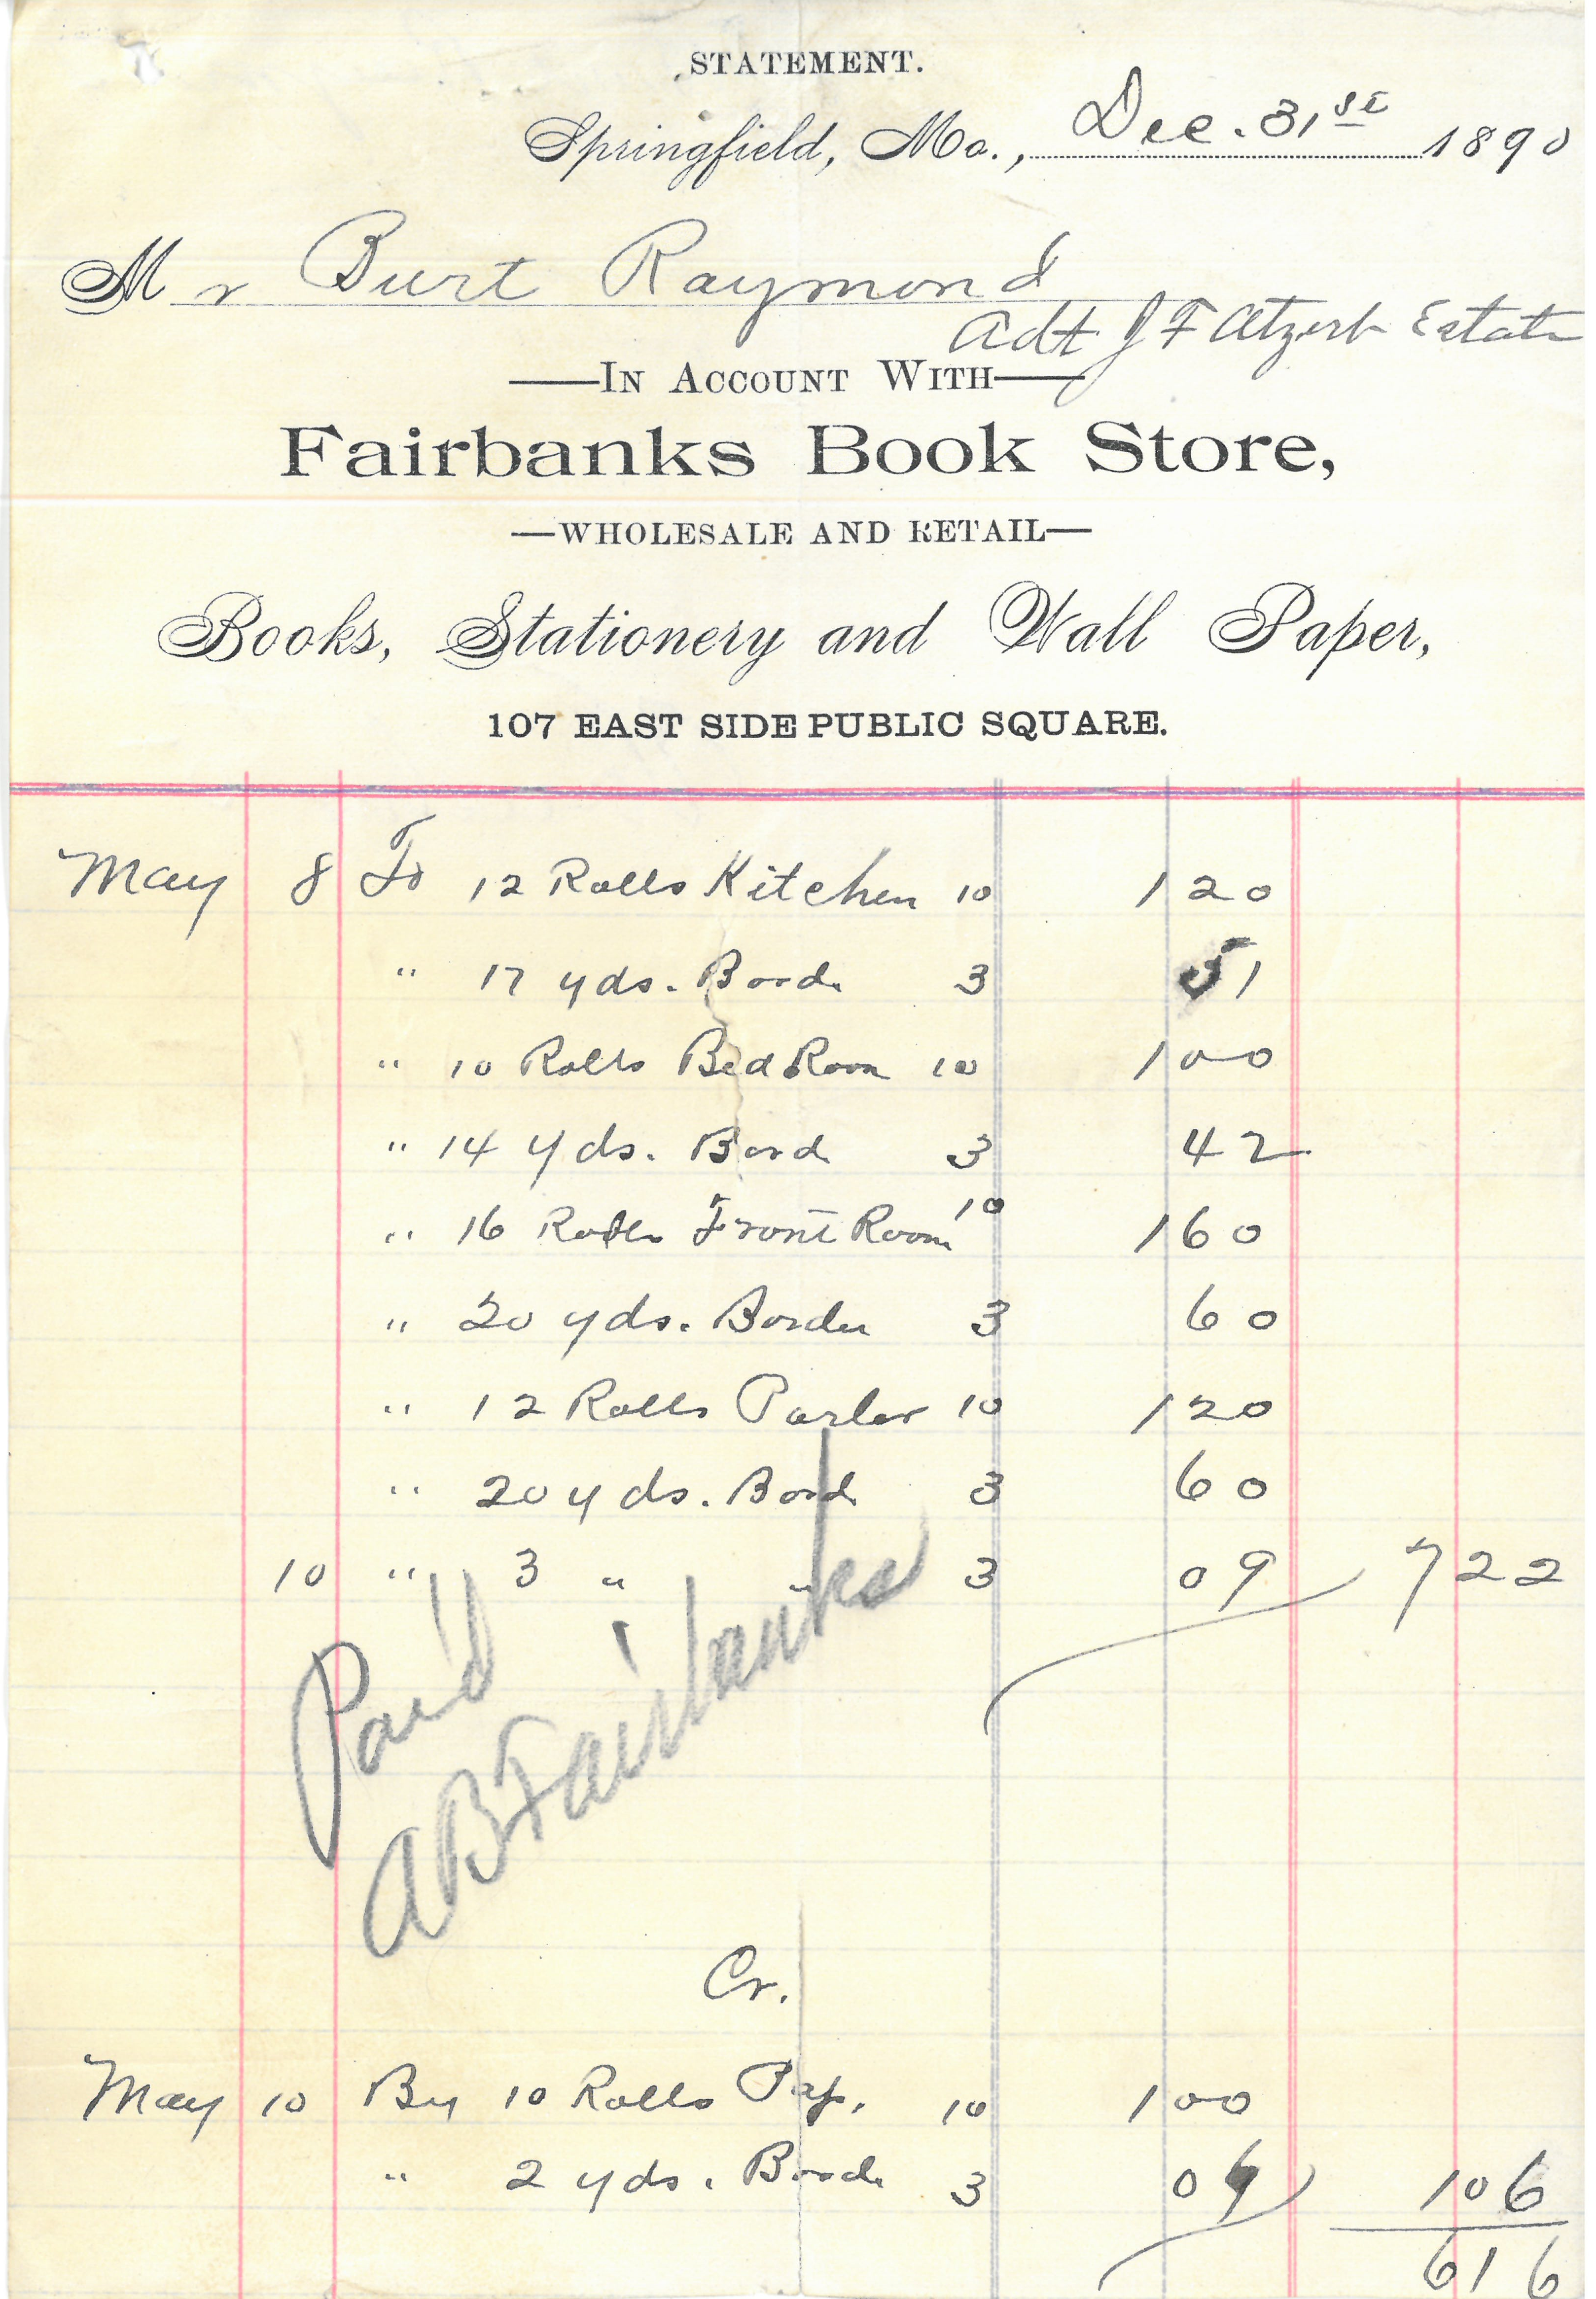 STATEMENT.
Springfield, Mo., Dec. 31st 1890
Mr Burt Raymond
Adt J F Atzerb Estate
IN ACCOUNT WITH
Fairbanks Book Store,
—WHOLESALE AND RETAIL—
Books, Stationery and Wall Paper,
107 EAST SIDE PUBLIC SQUARE.
May 8 To 12 Rolls Kitchen 10 1 20
" 17 yds. Bord. 3 51
" 10 Rolls Bed Room 10 1 00
" 14 yds. Bord. 3 42
" 16 Rolls Front Room 10 1 60
" 20 yds. Border 3 60
" 12 Rolls Parlor 10 1 20
" 20 yds. Bord. 3 60
10 " 3 " " 3 09 7 22
Paid
A B Fairbanks
Cr.
May 10 By 10 Rolls Pap. 10 1 00
" 2 yds. Bord. 3 06 1 06
6 16